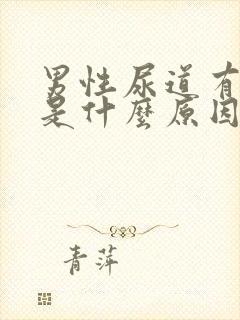 男性尿道有
是什麼原因
青萍